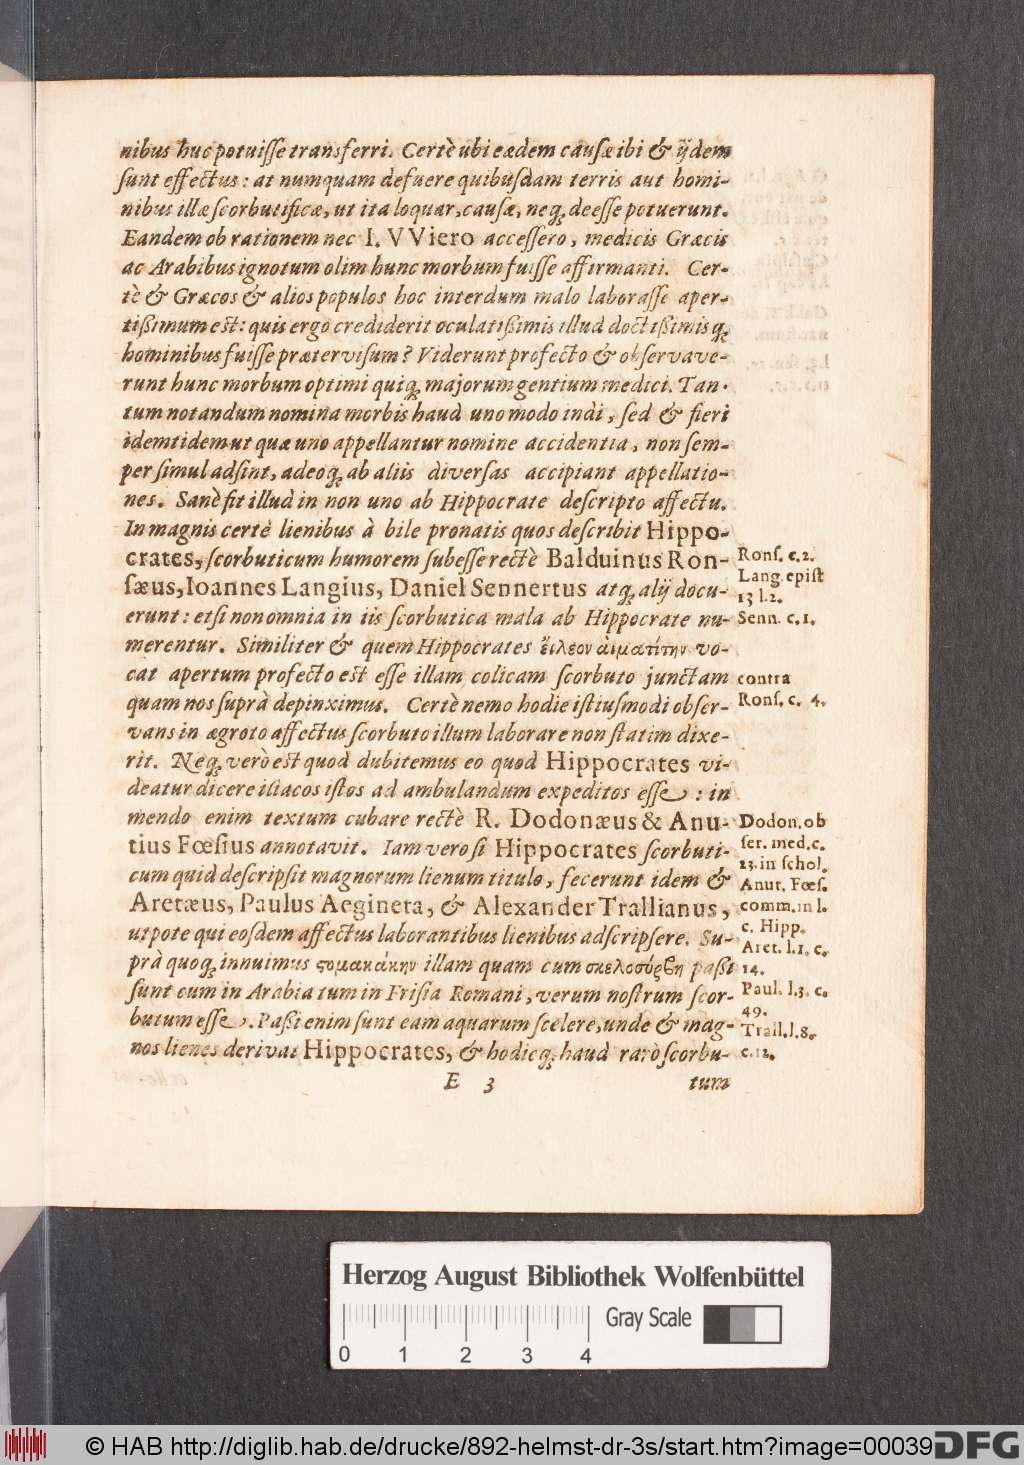 nibus huc potuiſſe transferri. Certè ubi eædem cauſæ ibi & ijdem
ſunt effectus: at numquam defuere quibuſdam terris aut homi-
nibus illæ ſcorbutificæ, ut ita loquar, cauſæ, neq; deeſſe potuerunt.
Eandem ob rationem nec I. VViero acceſſero, medicis Græcis
ac Arabibus ignotum olim hunc morbum fuiſſe affirmanti. Cer-
tè & Græcos & alios populos hoc interdum malo laboraſſe aper-
tißimum eſt: quis ergo crediderit oculatißimis illud doctißimisq;
hominibus fuiſſe prætervisum? Viderunt profecto & obſervave-
runt hunc morbum optimi quiq; majorum gentium medici. Tan-
tum notandum nomina morbis haud uno modo indi, ſed & fieri
idemtidem ut quæ uno appellantur nomine accidentia, non ſem-
per ſimul adſint, adeoq; ab aliis diverſas accipiant appellatio-
nes. Sanè fit illud in non uno ab Hippocrate deſcripto affectu.
In magnis certè lienibus à bile pronatis quos deſcribit Hippo-
crates, ſcorbuticum humorem ſubeſſe rectè Balduinus Ron-
ſæus, Ioannes Langius, Daniel Sennertus atq; alij docu-
erunt: etſi non omnia in iis ſcorbutica mala ab Hippocrate nu-
merentur. Similiter & quem Hippocrates ἔιλεον αιματίτην vo-
cat apertum profecto eſt eſſe illam colicam ſcorbuto junctam
quam nos ſuprà depinximus. Certè nemo hodie iſtiuſmodi obſer-
vans in ægroto affectus ſcorbuto illum laborare non ſtatim dixe-
rit. Neq; verò eſt quod dubitemus eo quod Hippocrates vi-
deatur dicere iliacos iſtos ad ambulandum expeditos eſſe: in
mendo enim textum cubare rectè R. Dodonæus & Anu-
tius Fœſius annotavit. Iam vero ſi Hippocrates ſcorbuti-
cum quid deſcripſit magnorum lienum titulo, fecerunt idem &
Aretæus, Paulus Aegineta, & Alexander Trallianus,
utpote qui eoſdem affectus laborantibus lienibus adſcripſere. Su-
prà quoq; innuimus ϛομακάκην illam quam cum σκελοτύρβη paßi
ſunt cum in Arabia tum in Friſia Romani, verum noſtrum ſcor-
butum eſſe. Paßi enim ſunt eam aquarum ſcelere, unde & mag-
nos lienes derivat Hippocrates, & hodieq; haud rarò ſcorbu-
E 3
tum
Ronſ. c. 2.
Lang. epiſt
13 l. 2.
Senn. c. 1.
contra
Ronſ. c. 4.
Dodon. ob
ſer. med. c.
23. in ſchol.
Anut. Fœſ.
comm. in l.
c. Hipp.
Aret. l. 1. c.
14.
Paul. l. 3. c.
49.
Trall. l. 8.
c. 12.
Herzog August Bibliothek Wolfenbüttel
Gray Scale
0 1 2 3 4
© HAB http://diglib.hab.de/drucke/892-helmst-dr-3s/start.htm?image=00039
DFG